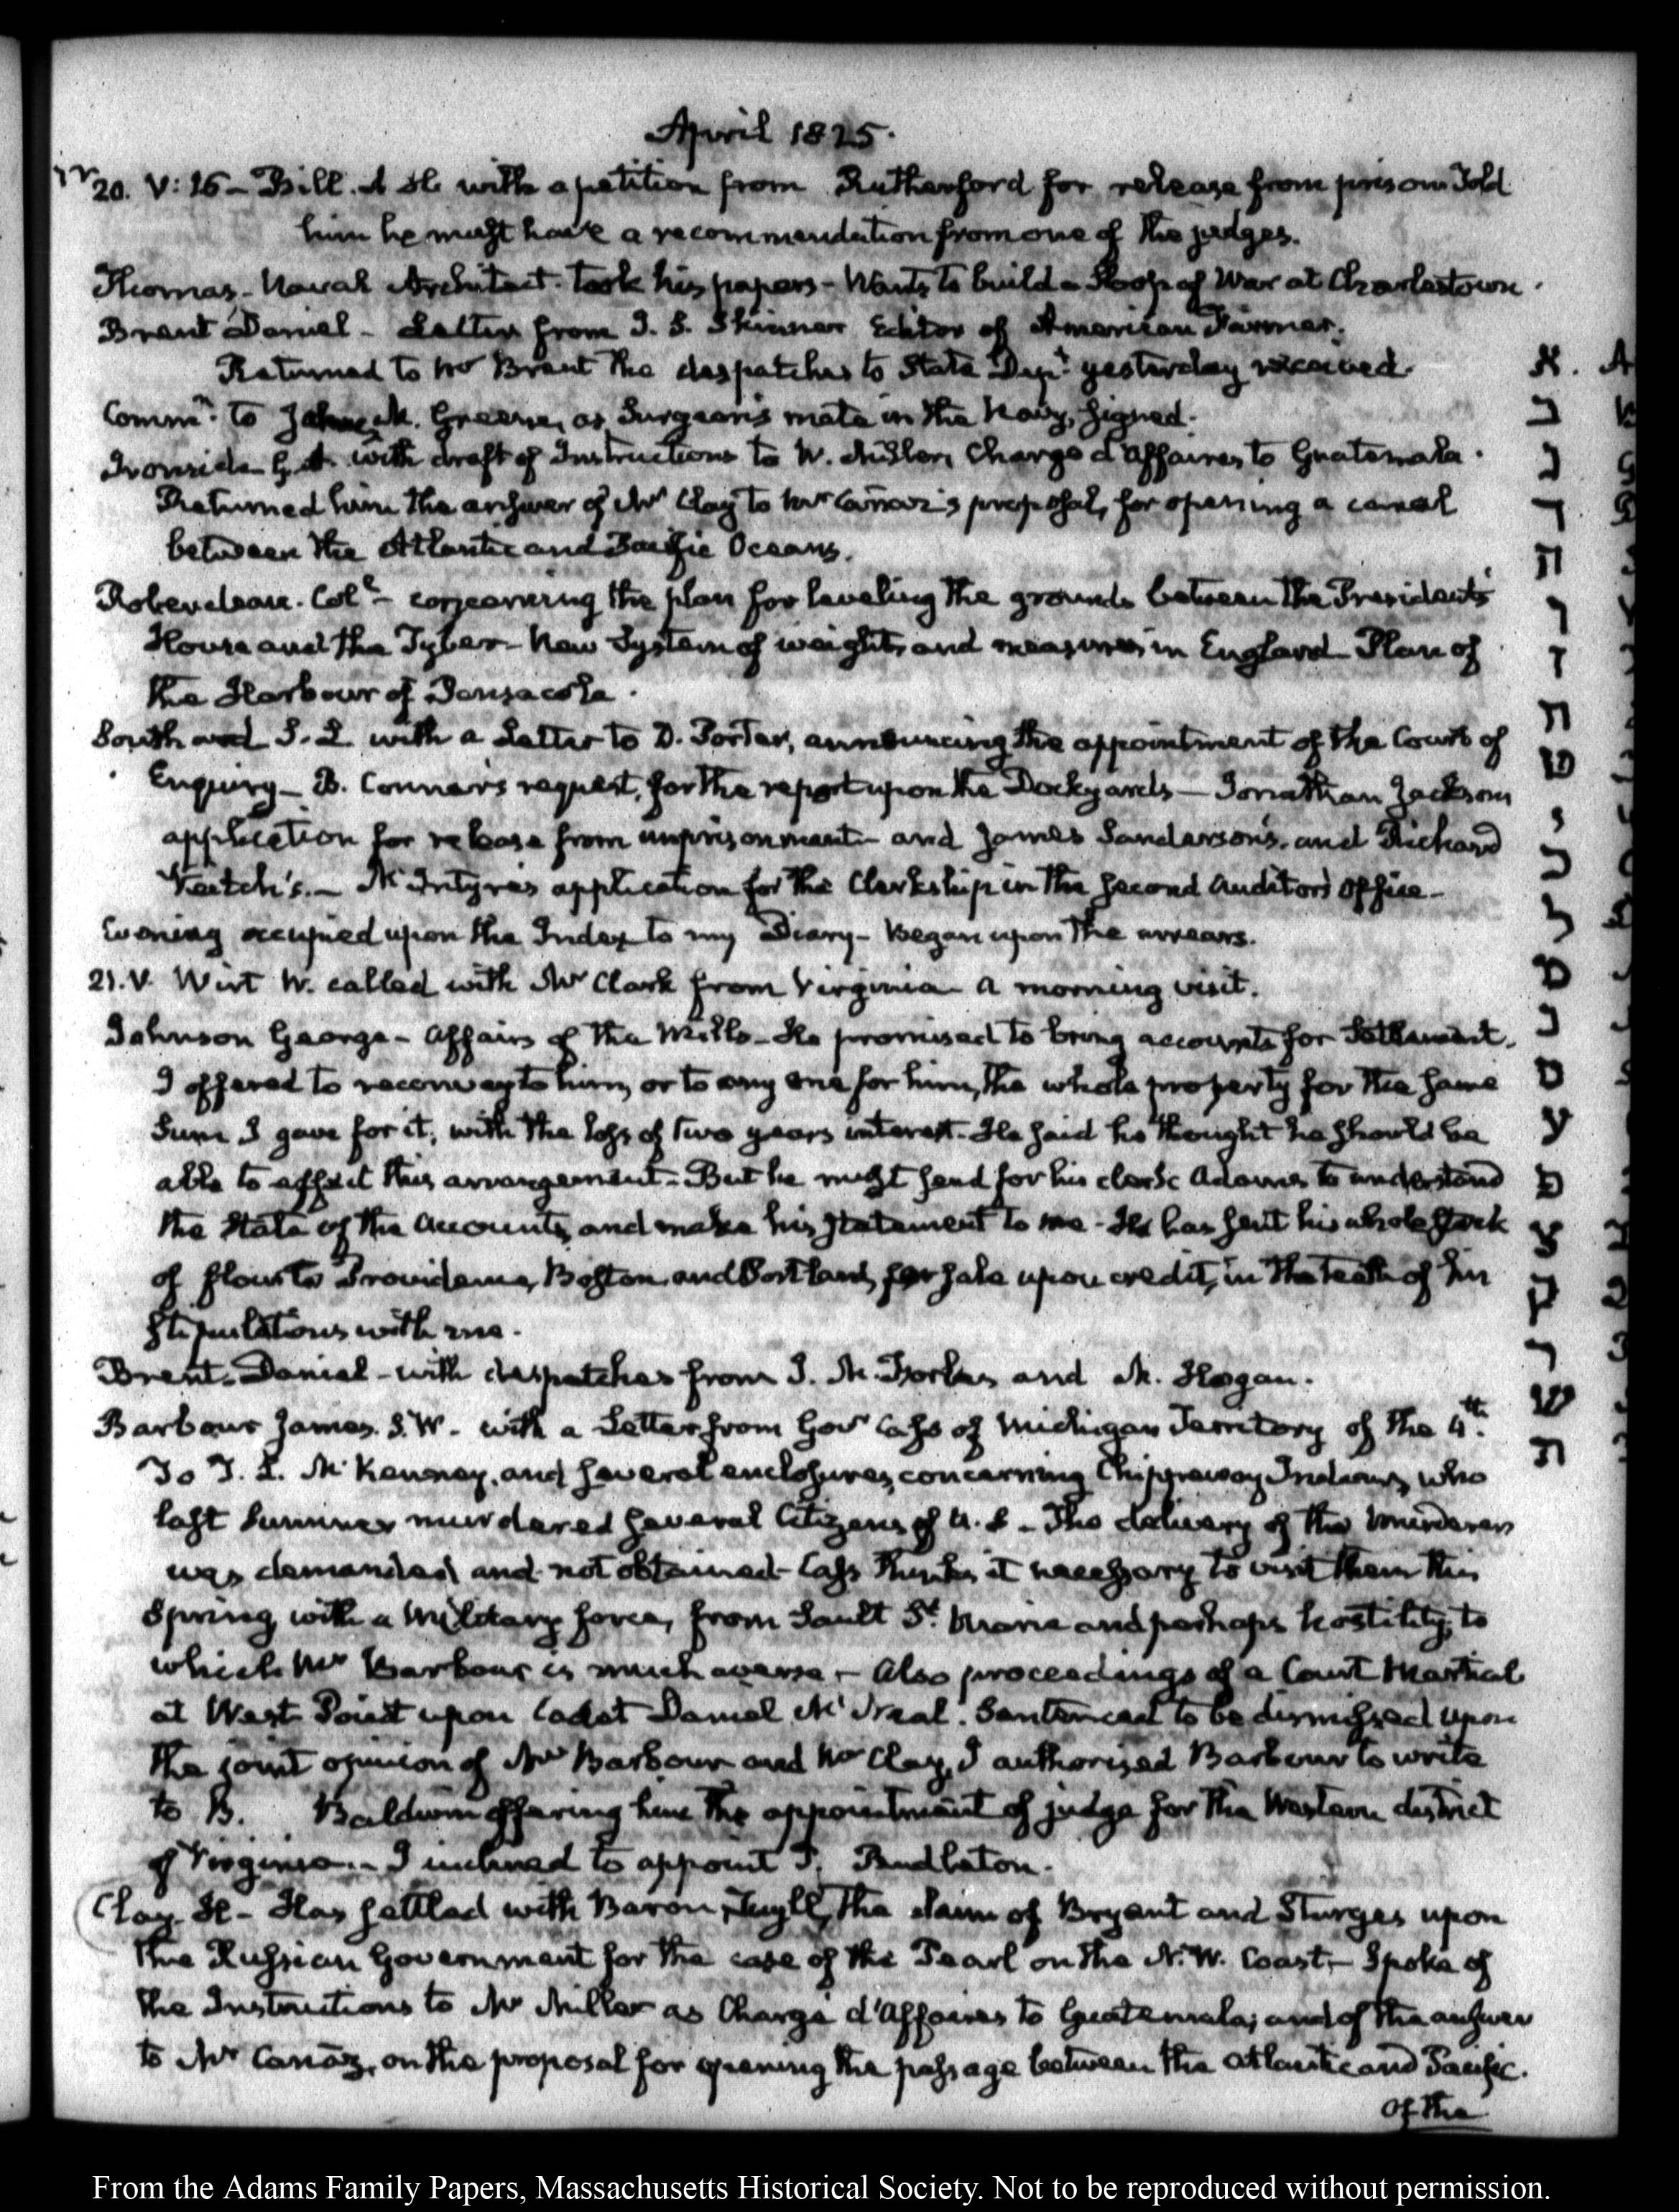 April 1825.
IV
20. V: 16 – Bill. with a petition from Rutherford for release from prison Told
him he must have a recommendation from one of the judges.
Thomas – Naval Architect – took his papers – Wants to build a Sloop of War at Charlestown.
Brent Daniel – Letter from J. S. Skinner Editor of American Farmer.
Returned to Mr Brent the despatches to State Dept yesterday received.
Commn. to M. Greene, as Surgeon's mate in the Navy, signed.
Ironside G. with draft of Instructions to W. Miller, Chargé d'affaires to Guatemala.
Returned him the answer of Mr Clay to Mr Cañaz's proposal, for opening a canal
between the Atlantic and Pacific Oceans.
Roberdeau. Coll – concerning the plan for leveling the grounds between the President's
House and the Tyber – New System of weights and measures in England – Plan of
the Harbour of Pensacola.
Southard S. L with a Letter to D. Porter, announcing the appointment of the Court of
Enquiry – Conner's request, for the report upon the Dockyards – Jonathan Jackson
application for release from imprisonment – and James Sanderson's, and Richard
Veitch's. – McIntyre's application for the Clerkship in the Second Auditor's office –
Evening occupied upon the Index to my Diary – Began upon the arrears.
21. V. Wirt W. called with Mr Clark from Virginia a morning visit.
Johnson George – Affairs of the Mills – He promised to bring accounts for settlement.
I offered to reconvey to him, or to any one for him, the whole property for the same
Sum I gave for it, with the loss of two years interest. He said he thought he should be
able to effect this arrangement – But he must send for his clerk Adams to understand
the State of the Accounts, and make his statement to me – He has sent his whole stock
of flour to Providence, Boston, and Portland, for sale upon credit, in the teeth of his
stipulations with me.
Brent. Daniel – with despatches from J. M. Forbes and M. Hogan.
Barbour James. S. W. – with a Letter from Govr Cass of Michigan Territory of the 4th.
To T. L. McKenney, and several enclosures, concerning Chippeway Indians, who
last Summer murdered several Citizens of U. S – The delivery of the murderers
was demanded and not obtained – Cass thinks it necessary to visit them this
Spring, with a Military force, from Sault St. Marie and perhaps hostility, to
which Mr Barbour is much averse. – Also proceedings of a Court Martial
at West Point upon Cadet Daniel Sentenced to be dismissed Upon
the joint opinion of Mr Barbour and Mr Clay, I authorised Barbour to write
to B. Baldwin offering him the appointment of judge for the Western district
of Virginia. – I inclined to appoint P. Pendleton.
Clay. H – Has settled with Baron Tuyll, the claim of Bryant and Sturges upon
the Russian Government for the case of the Pearl on the N. W. Coast, – Spoke of
the Instructions to Mr Miller as Chargé d'Affaires to Guatemala; and of the answer
to Mr Cañaz, on the proposal for opening the passage between the Atlantic and Pacific.
of the
א. A
ב
ג
ד
ה
ו
ז
ח
ט
י
כ
ל
מ
נ
ס
ע
פ
צ
ק
ר
ש
ת
From the Adams Family Papers, Massachusetts Historical Society. Not to be reproduced without permission.